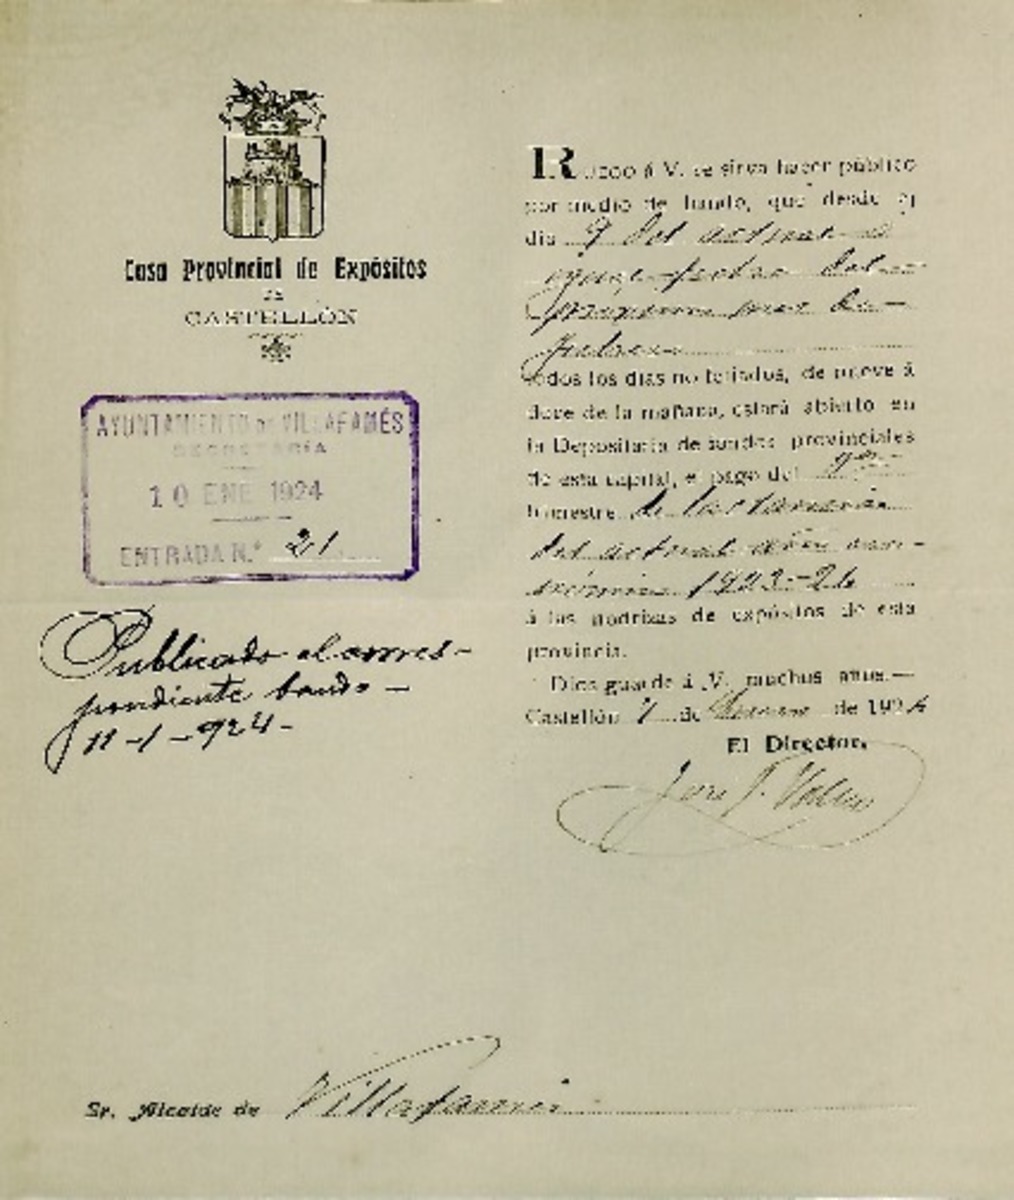 Casa Provincial de Expósitos
DE
CASTELLÓN
AYUNTAMIENTO DE VILLAFAMÉS
SECRETARÍA
10 ENE 1924
ENTRADA N.º 21
Publicado el corres-
pondiente bando -
11-1-924-
RUEGO á V. se sirva hacer público
por medio de bando, que desde el
día 9 del actual a
igual fecha del
próximo mes de
Febrero
todos los días no feriados, de nueve á
doce de la mañana, estará abierto en
la Depositaría de fondos provinciales
de esta capital, el pago del
trimestre de lactancia
del actual año eco-
nómico 1923-24
á las nodrizas de expósitos de esta
provincia.
Dios guarde á V. muchos años.—
Castellón 7 de Enero de 1924
El Director,
Sr. Alcalde de Villafamés